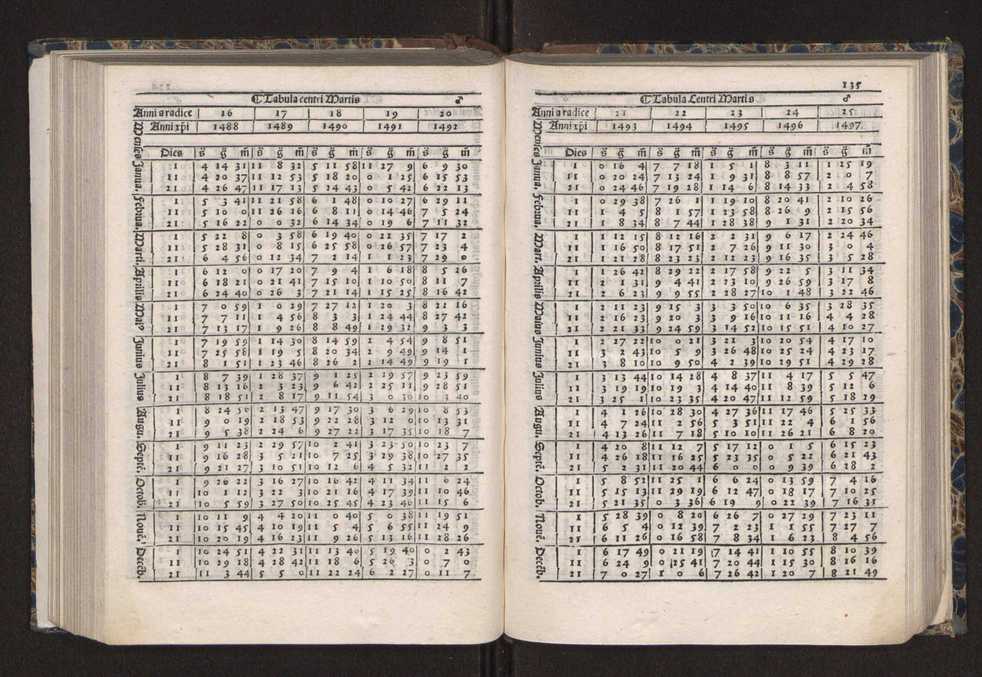 ☾Tabula centri Martis ♂
Anni a radice 16 17 18 19 20
Anni xpi 1488 1489 1490 1491 1492
Menses Dies s g m s g m s g m s g m s g m
Janua. 1 4 14 31 11 8 32 5 11 58 11 27 9 6 9 30
11 4 20 37 11 12 53 5 18 20 0 1 25 6 15 53
21 4 26 47 11 17 13 5 24 43 0 5 42 6 22 13
Februa. 1 5 3 41 11 21 58 6 1 48 0 10 27 6 29 11
11 5 10 0 11 26 16 6 8 11 0 14 46 7 5 24
21 5 16 22 0 0 32 6 14 34 0 19 6 7 11 32
Marti. 1 5 22 8 0 3 58 6 19 40 0 22 35 7 17 2
11 5 28 31 0 8 15 6 25 58 0 26 57 7 23 4
21 6 4 56 0 12 34 7 2 14 1 1 23 7 29 0
Aprilis 1 6 12 0 0 17 20 7 9 4 1 6 18 8 5 26
11 6 18 21 0 21 41 7 15 10 1 10 50 8 11 7
21 6 24 40 0 26 3 7 21 14 1 15 25 8 16 42
Mai⁹ 1 7 0 59 1 0 29 7 27 12 1 20 3 8 22 16
11 7 7 11 1 4 56 8 3 3 1 24 44 8 27 42
21 7 13 17 1 9 26 8 8 49 1 29 32 9 3 3
Junius 1 7 19 59 1 14 30 8 14 59 2 4 54 9 8 51
11 7 25 58 1 19 5 8 20 34 2 9 49 9 14 1
21 8 1 51 1 23 46 8 26 2 2 14 49 9 19 1
Julius 1 8 7 39 1 28 37 9 1 25 2 19 57 9 23 59
11 8 13 16 2 3 23 9 6 42 2 25 11 9 28 51
21 8 18 51 2 8 17 9 11 54 3 0 30 10 3 40
Augu. 1 8 24 50 2 13 47 9 17 30 3 6 29 10 8 53
11 9 0 19 2 18 53 9 22 28 3 12 0 10 13 31
21 9 5 38 2 24 6 9 27 22 3 17 35 10 18 7
Septē. 1 9 11 23 2 29 57 10 2 41 3 23 50 10 23 7
11 9 16 28 3 5 21 10 7 25 3 29 38 10 27 35
21 9 21 27 3 10 51 10 12 6 4 5 32 11 2 2
Octob. 1 9 26 22 3 16 27 10 16 42 4 11 34 11 6 24
11 10 1 12 3 22 3 10 21 16 4 17 39 11 10 46
21 10 5 59 3 27 50 10 25 45 4 23 46 11 15 6
Nouē. 1 10 11 9 4 4 20 11 0 40 5 0 38 11 19 51
11 10 15 45 4 10 19 11 5 4 5 6 55 11 24 9
21 10 20 19 4 16 23 11 9 26 5 13 16 11 28 26
Decēb. 1 10 24 51 4 22 31 11 13 40 5 19 40 0 2 43
11 10 29 18 4 28 42 11 18 6 5 26 3 0 7 0
21 11 3 44 5 5 0 11 22 24 6 2 27 0 11 7
135
☾Tabula Centri Martis ♂
Anni a radice 21 22 23 24 25
Anni xpi 1493 1494 1495 1496 1497
Menses Dies s g m s g m s g m s g m s g m
Janua. 1 0 16 4 7 7 18 1 5 1 8 3 11 1 25 19
11 0 20 24 7 13 24 1 9 31 8 8 57 2 0 7
21 0 24 46 7 19 28 1 14 6 8 14 33 2 4 58
Februa. 1 0 29 38 7 26 1 1 19 10 8 20 41 2 10 26
11 1 4 5 8 1 57 1 23 58 8 26 9 2 15 56
21 1 8 34 8 7 44 1 28 38 9 1 31 2 20 34
Mar. 1 1 12 15 8 12 16 2 2 31 9 6 17 2 24 46
11 1 16 50 8 17 51 2 7 26 9 11 30 3 0 4
21 1 21 28 8 23 23 2 12 23 9 16 35 3 5 28
Aprilis 1 1 26 42 8 29 22 2 17 58 9 22 5 3 11 34
11 2 1 31 9 4 41 2 23 10 9 26 59 3 17 8
21 2 6 23 9 9 55 2 28 27 10 1 48 3 22 46
Maius 1 2 11 23 9 15 3 3 3 50 10 6 35 3 28 35
11 2 16 23 9 20 3 3 9 16 10 11 16 4 4 28
21 2 21 33 9 24 59 3 14 52 10 15 51 4 10 27
Junius 1 2 27 22 10 0 21 3 21 3 10 20 54 4 17 10
11 3 2 43 10 5 9 3 26 48 10 25 24 4 23 17
21 3 8 10 10 9 50 4 2 39 10 29 51 4 29 28
Julius 1 3 13 44 10 14 28 4 8 37 11 4 17 5 5 47
11 3 19 19 10 19 3 4 14 40 11 8 39 5 12 6
21 3 25 1 10 23 35 4 20 47 11 12 59 5 18 29
Augu. 1 4 1 26 10 28 30 4 27 36 11 17 46 5 25 33
11 4 7 24 11 2 56 5 3 51 11 22 4 6 1 56
21 4 13 26 11 7 18 5 10 10 11 26 21 6 8 20
Septē. 1 4 20 8 11 12 7 5 17 12 0 1 5 6 15 23
11 4 26 18 11 16 25 5 23 35 0 5 22 6 21 43
21 5 2 31 11 20 44 6 0 0 0 9 39 6 28 2
Octob. 1 5 8 52 11 25 1 6 6 24 0 13 59 7 4 16
11 5 15 13 11 29 19 6 12 47 0 18 17 7 10 25
21 5 21 35 0 3 36 6 19 9 0 22 39 7 16 31
Nouē. 1 5 28 39 0 8 20 6 26 7 0 27 29 7 23 11
11 6 5 4 0 12 39 7 2 23 1 1 55 7 27 7
21 6 11 26 0 16 58 7 8 34 1 6 23 8 4 56
Decēb. 1 6 17 49 0 21 19 7 14 41 1 10 55 8 10 39
11 6 24 9 0 25 41 7 20 44 1 15 30 8 16 16
21 7 0 27 1 0 6 7 26 42 1 20 7 8 21 49